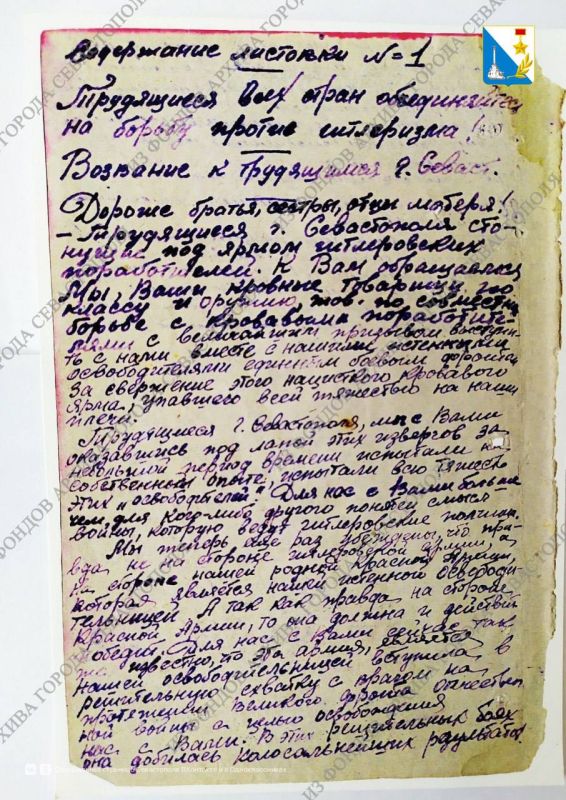 Содержание листовки №=1
Трудящиеся всех стран объединяйтесь
на борьбу против гитлеризма!
Воззвание к трудящимся г. Севаст.
Дорогие братья, сестры, отцы матеря!
- Трудящиеся г. Севастополя сто-
нущие под ярмом гитлеровских
поработителей. К Вам обращаемся
Мы, Ваши кровные товарищи по
классу и оружию, тов. по совместной
борьбе с кровавыми поработите-
лями с величайшим призывом выступи-
ть с нами вместе с нашими истенными
освободителями единным боевым фронтом
За свержение этого нацисткого кровавого
ярма, упавшего всей тяжестью на наши
плечи.
Трудящиеся г. Севастополя, мы с Вами
оказавшись под лапой этих извергов за
небольшой период времени испытали на
собственном опыте, испытали всю тяжесть
этих "освободителей". Для нас с Вами больше
чем, для кого-либо другого понятен смысл
войны, которую ведут гитлеровские
Мы теперь еще раз убеждены, что пра-
вда не на стороне гитлеровской армии, а
на стороне нашей родной Красной Армии,
которая является нашей истенной освободи-
тельницей. А так как правда на стороне
Красной Армии, то она должна и действий
победы. Для нас с Вами сейчас так
же известно, что эта армия, является
нашей освободительницей вступила в
решительную схватку с врагом на
протяжении великого фронта отечествен
ной войны с целью освобождения
нас с Вами. В этих решительных боях
она добилась колосальнейших результатов
ИЗ ФОНДОВ АРХИВА ГОРОДА СЕВАСТОПОЛЯ